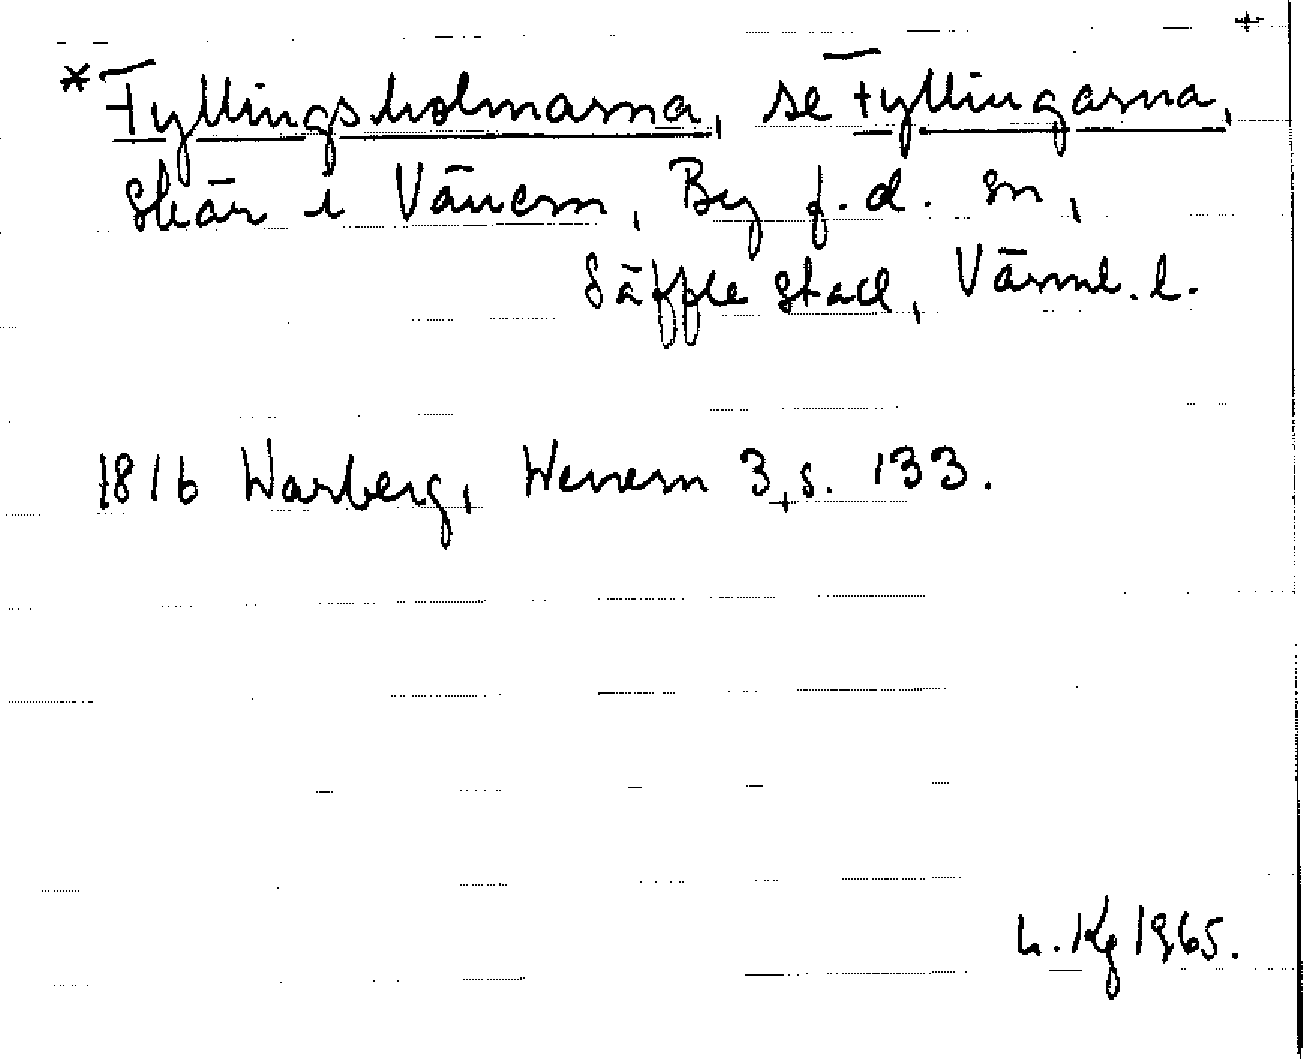 +
*Fyllingsholmarna, se Fyllingarna,
skär i Vänern, By f.d. sn,
Säffle stad, Värml. l.
1816 Warberg, Wenern 3, s. 133.
L. Kg 1965.